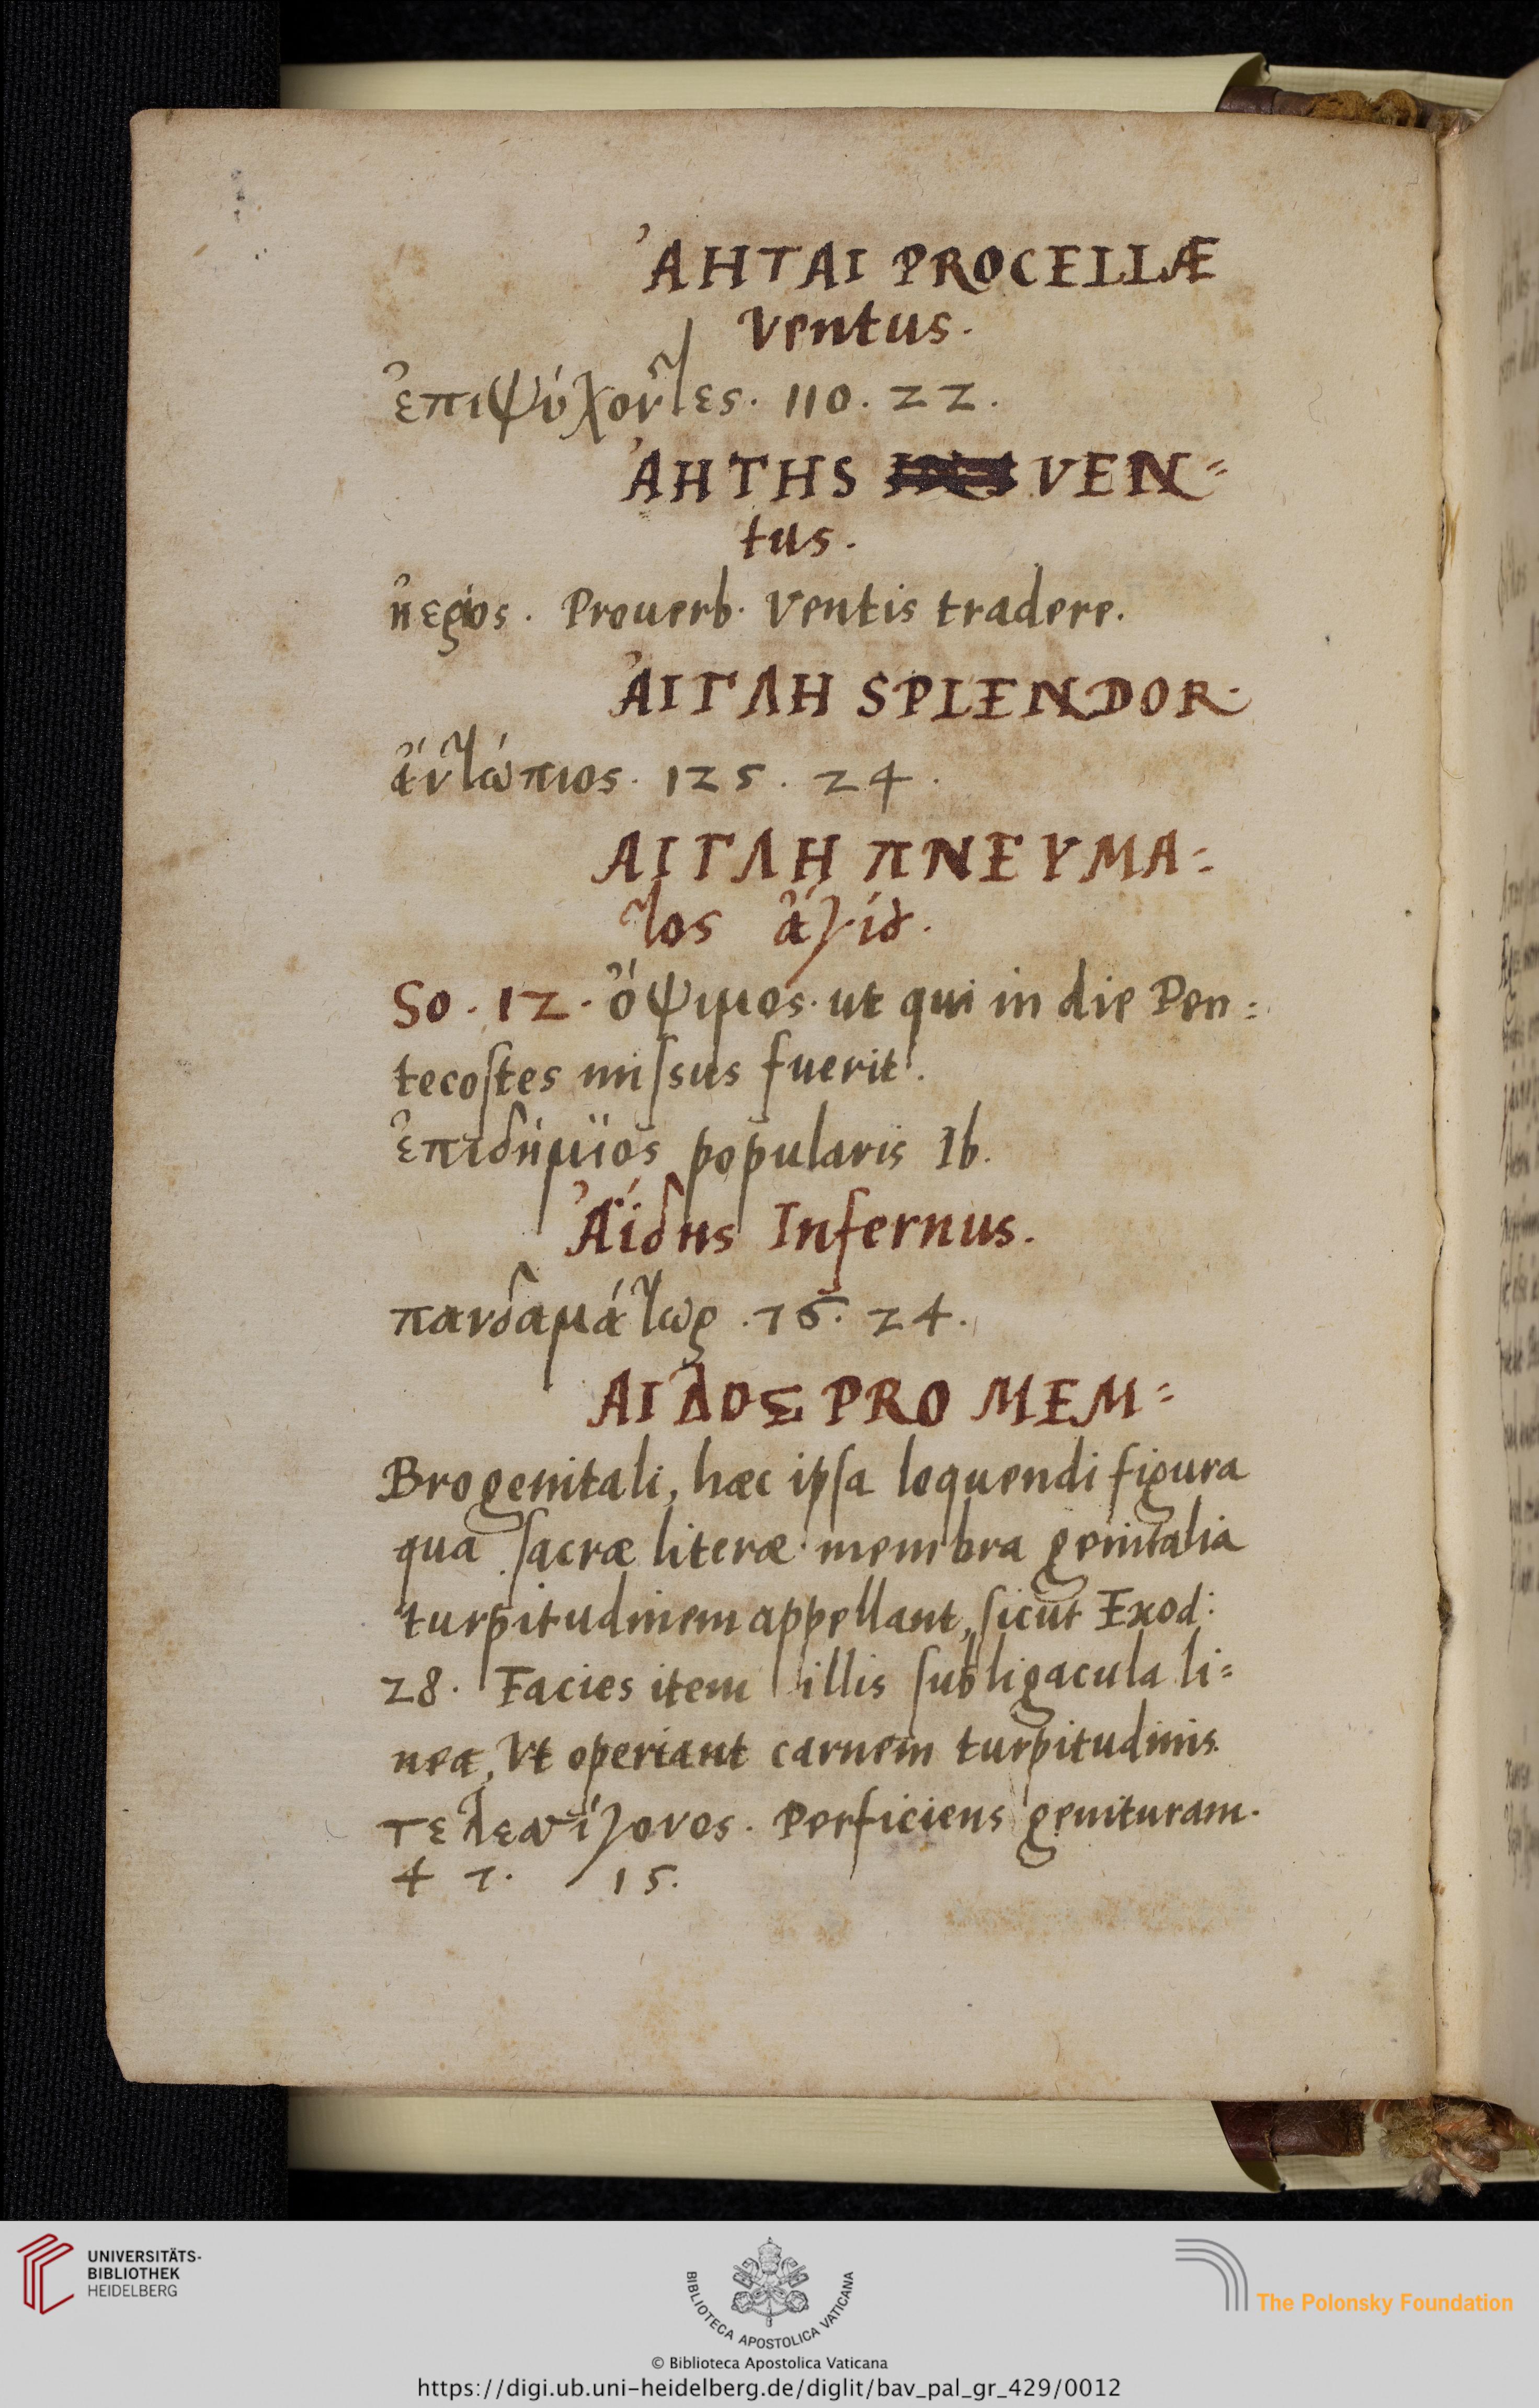 ἈΗΤΑΙ PROCELLÆ
Ventus.
ἐπιψύχοντες. 110. 22.
ἈΗΤΗS VEN=
tus.
ἠερίος. Prouerb. Ventis tradere.
ἈΙΓΛΗ SPLENDOR.
ἀντώπιος. 125. 24.
ΑΙΓΛΗ ΠΝΕΥΜΑ=
τος ἁγίου.
So. 12. ὄψιμος. ut qui in die Pen=
tecoſtes miſsus fuerit.
ἐπιδήμϊος popularis Ib.
Ἀίδης Infernus.
πανδαμάτωρ. 76. 24.
ΑΙΔΟΣ PRO MEM=
Bro genitali, hæc ipſa loquendi figura
qua ſacræ literæ membra genitalia
turpitudinem appellant, ſicut Exod:
28. Facies item illis ſubligacula li=
nea, Vt operiant carnem turpitudinis.
Perficiens genituram.
47. 15.
UNIVERSITÄTS-
BIBLIOTHEK
HEIDELBERG
BIBLIOTECA APOSTOLICA VATICANA
The Polonsky Foundation
© Biblioteca Apostolica Vaticana
https://digi.ub.uni-heidelberg.de/diglit/bav_pal_gr_429/0012